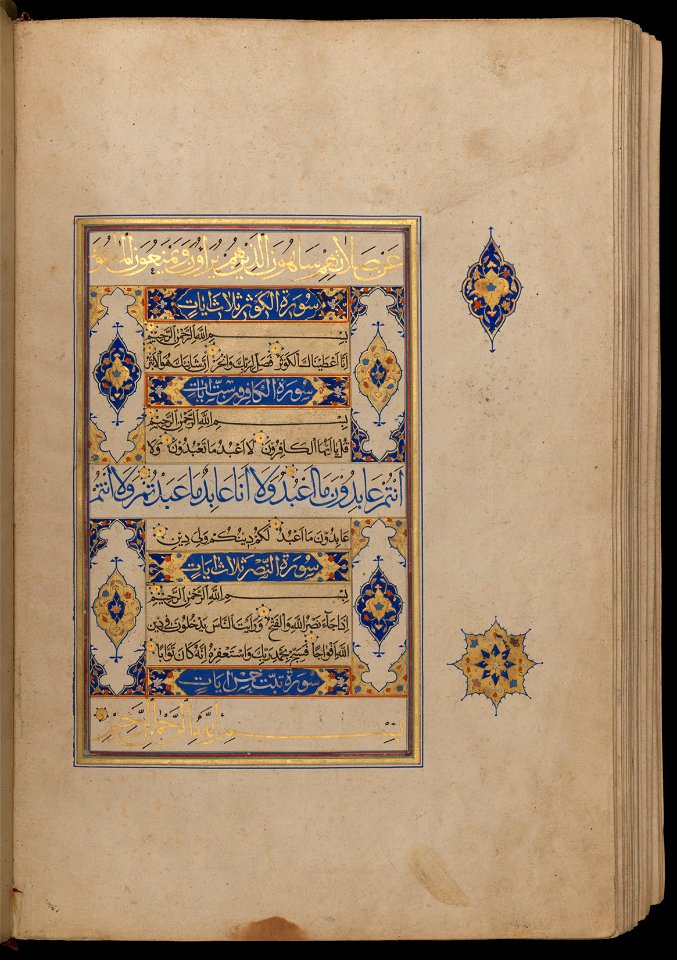 عَنْ صَلَاتِهِمْ سَاهُونَ الَّذِينَ هُمْ يُرَاؤُنَ وَيَمْنَعُونَ الْمَاعُونَ
سورة الكوثر ثلاث ايات
بسم الله الرحمن الرحيم
اِنَّا اَعْطَيْنَاكَ الْكَوْثَرَ فَصَلِّ لِرَبِّكَ وَانْحَرْ اِنَّ شَانِئَكَ هُوَ الْاَبْتَرُ
سورة الكافرون ست ايات
بسم الله الرحمن الرحيم
قُلْ يَا اَيُّهَا الْكَافِرُونَ لَا اَعْبُدُ مَا تَعْبُدُونَ وَلَا
اَنْتُمْ عَابِدُونَ مَا اَعْبُدُ وَلَا اَنَا عَابِدٌ مَا عَبَدْتُمْ وَلَا اَنْتُمْ
عَابِدُونَ مَا اَعْبُدُ لَكُمْ دِينُكُمْ وَلِيَ دِينِ
سورة النصر ثلاث ايات
بسم الله الرحمن الرحيم
اِذَا جَاءَ نَصْرُ اللهِ وَالْفَتْحُ وَرَاَيْتَ النَّاسَ يَدْخُلُونَ فِي دِينِ
اللهِ اَفْوَاجًا فَسَبِّحْ بِحَمْدِ رَبِّكَ وَاسْتَغْفِرْهُ اِنَّهُ كَانَ تَوَّابًا
سورة تبت خمس ايات
بسم الله الرحمن الرحيم